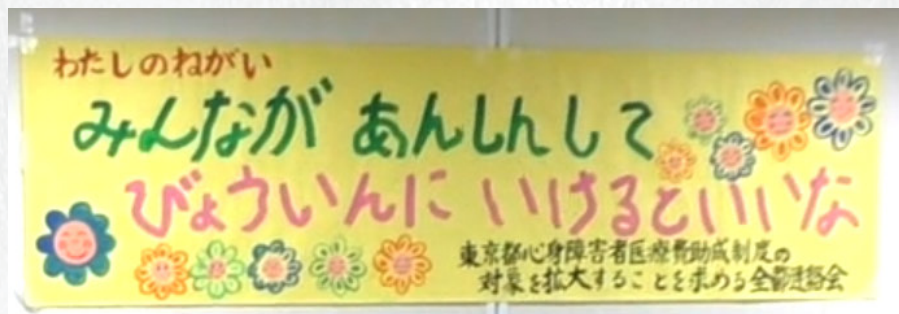 わたしのねがい
みんなが あんしんして
びょういんに いけるといいな
東京都心身障害者医療費助成制度の
対象を拡大することを求める全都連絡会